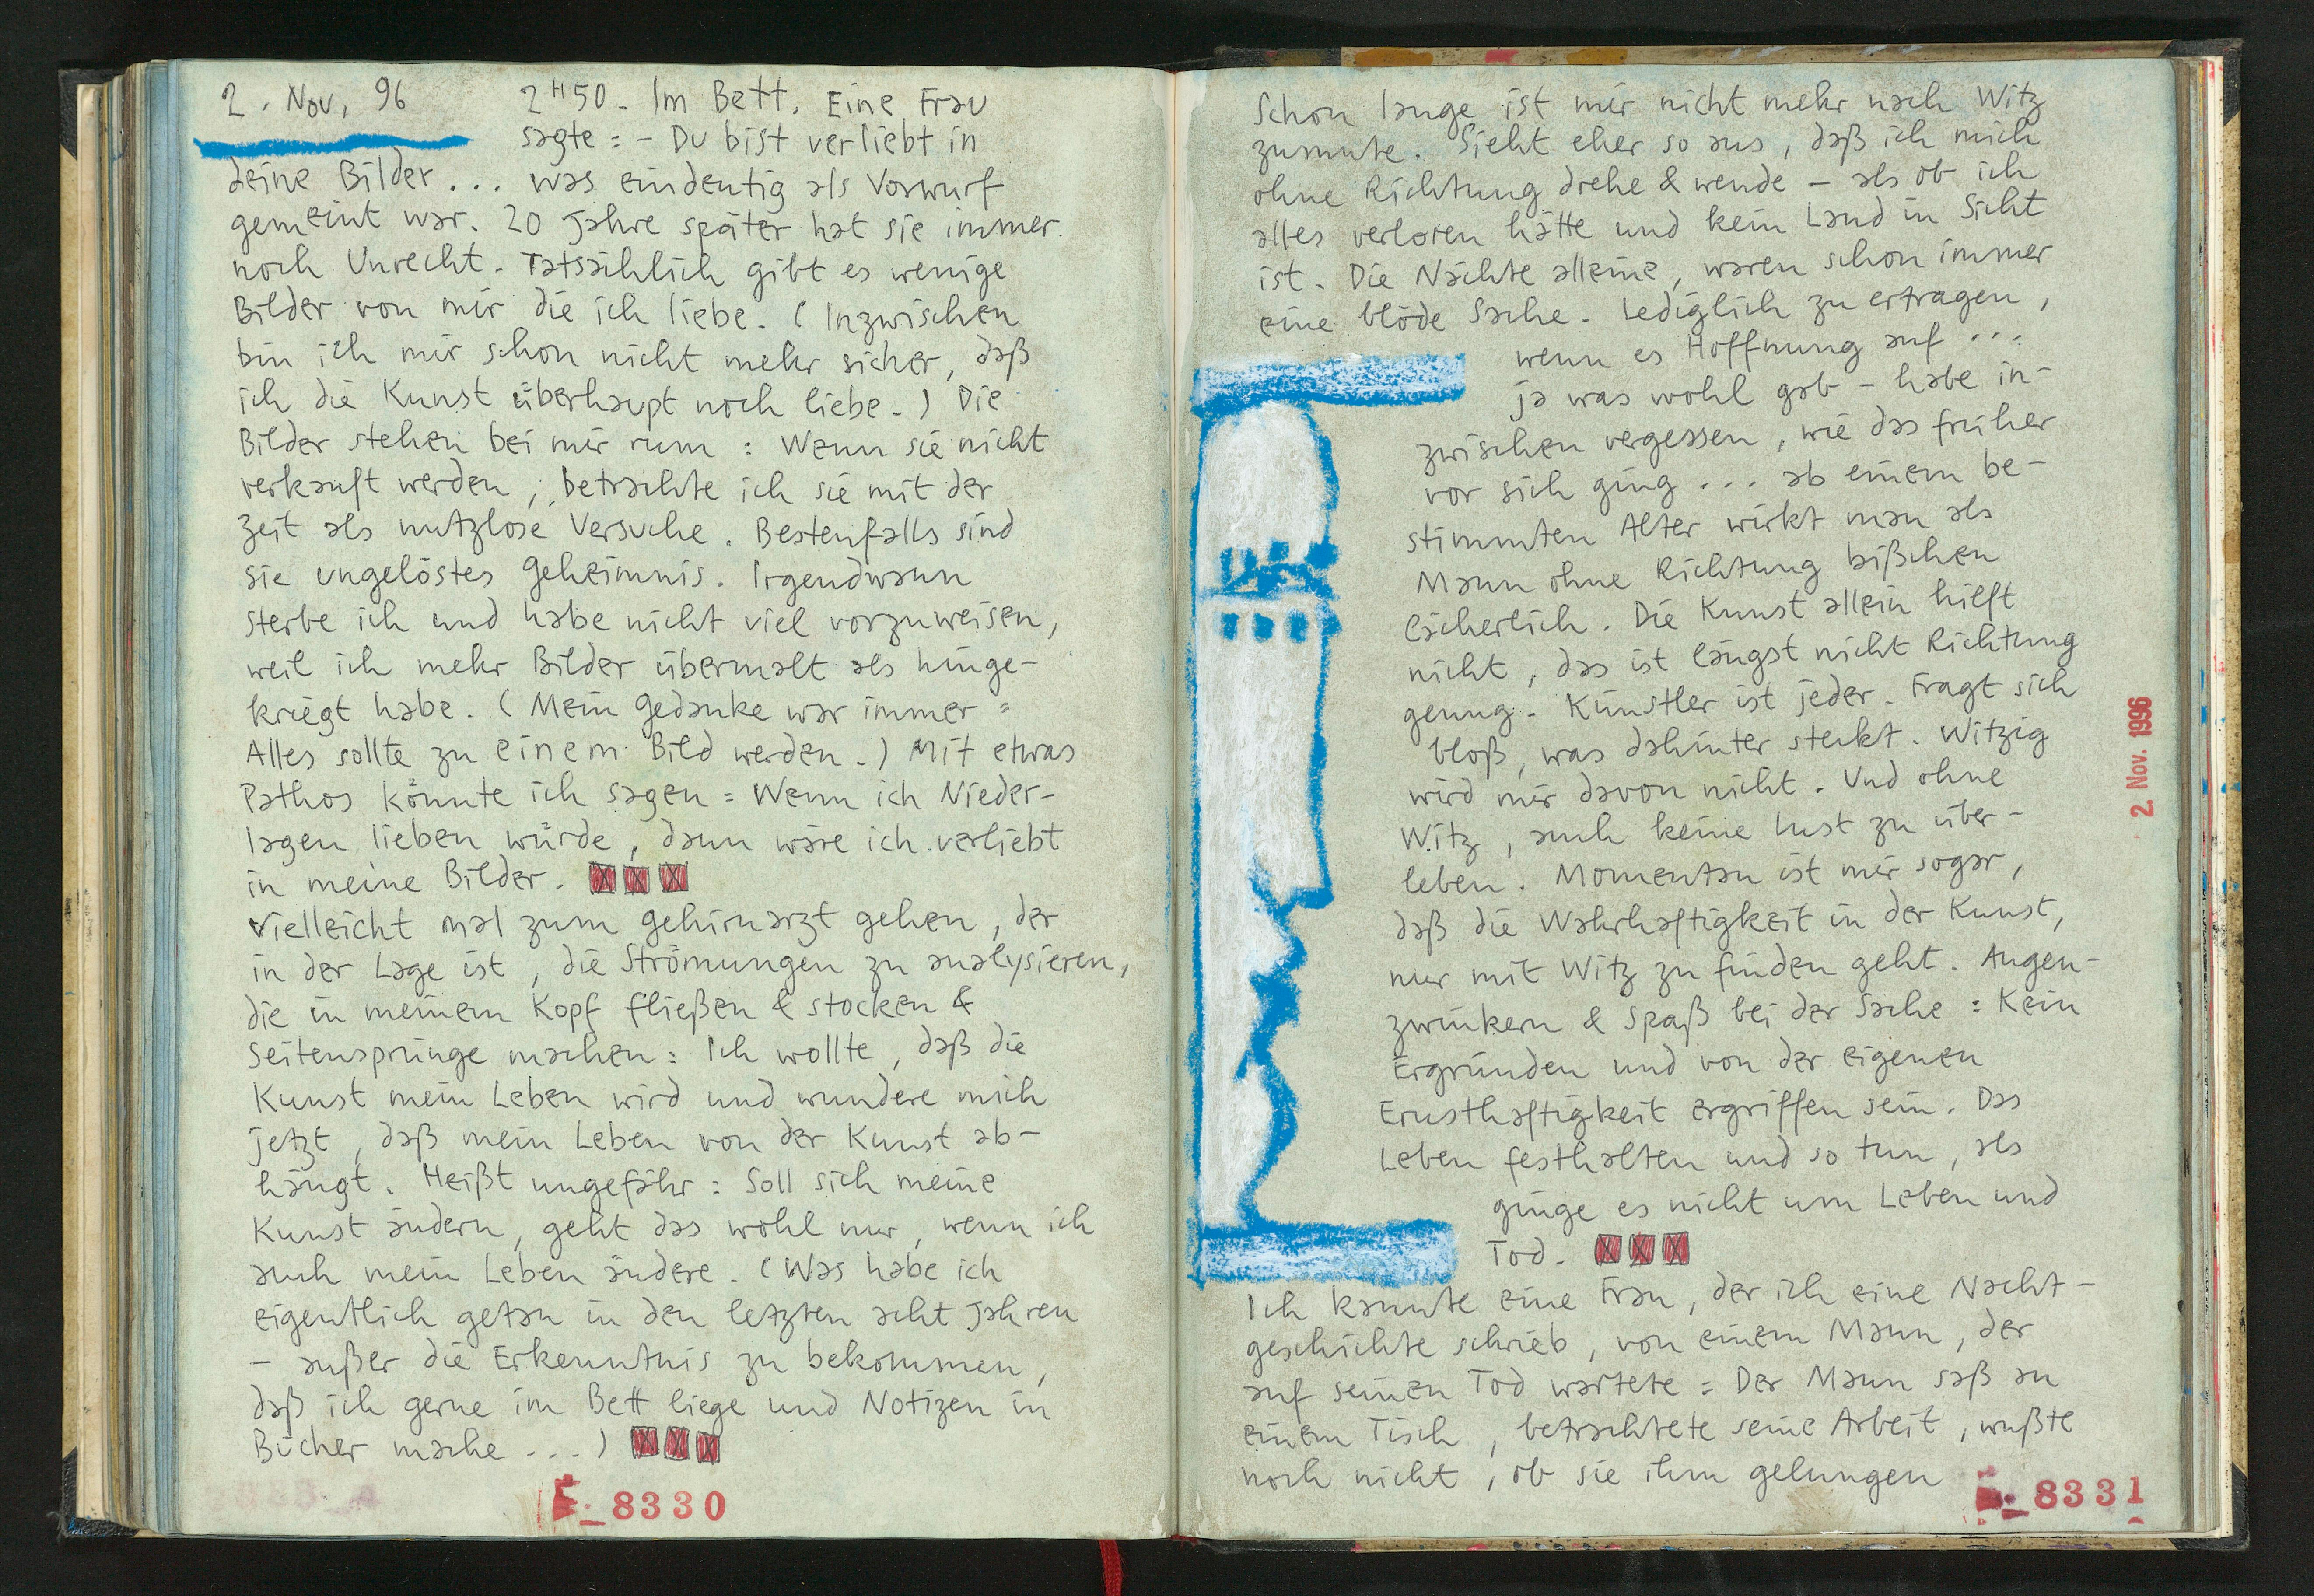 2. Nov. 96 2H50 - Im Bett. Eine Frau
sagte: - Du bist verliebt in
deine Bilder... was eindeutig als Vorwurf
gemeint war. 20 Jahre später hat sie immer
noch Unrecht. Tatsächlich gibt es wenige
Bilder von mir die ich liebe. (Inzwischen
bin ich mir schon nicht mehr sicher, daß
ich die Kunst überhaupt noch liebe.) Die
Bilder stehen bei mir rum: Wenn sie nicht
verkauft werden, betrachte ich sie mit der
Zeit als nutzlose Versuche. Bestenfalls sind
sie ungelöstes Geheimnis. Irgendwann
sterbe ich und habe nicht viel vorzuweisen,
weil ich mehr Bilder übermalt als hinge-
kriegt habe. (Mein Gedanke war immer:
Alles sollte zu einem Bild werden.) Mit etwas
Pathos könnte ich sagen: Wenn ich Nieder-
lagen lieben würde, dann wäre ich verliebt
in meine Bilder.
Vielleicht mal zum Gehirnarzt gehen, der
in der Lage ist, die Strömungen zu analysieren,
die in meinem Kopf fließen & stocken &
Seitensprünge machen: Ich wollte, daß die
Kunst mein Leben wird und wundere mich
jetzt, daß mein Leben von der Kunst ab-
hängt. Heißt ungefähr: Soll sich meine
Kunst ändern, geht das wohl nur, wenn ich
auch mein Leben ändere. (Was habe ich
eigentlich getan in den letzten acht Jahren
- außer die Erkenntnis zu bekommen,
daß ich gerne im Bett liege und Notizen in
Bücher mache...)
_8330
Schon lange ist mir nicht mehr nach Witz
zumute. Sieht eher so aus, daß ich mich
ohne Richtung drehe & wende - als ob ich
alles verloren hätte und kein Land in Sicht
ist. Die Nächte alleine, waren schon immer
eine blöde Sache. Lediglich zu ertragen,
wenn es Hoffnung auf...
ja was wohl gab - habe in-
zwischen vergessen, wie das früher
vor sich ging... ab einem be-
stimmten Alter wirkt man als
Mann ohne Richtung bißchen
lächerlich. Die Kunst allein hilft
nicht, das ist längst nicht Richtung
genug. Künstler ist jeder. Fragt sich
bloß, was dahinter steckt. Witzig
wird mir davon nicht. Und ohne
Witz, auch keine Lust zu über-
leben. Momentan ist mir sogar,
daß die Wahrhaftigkeit in der Kunst,
nur mit Witz zu finden geht. Augen-
zwinkern & Spaß bei der Sache: Kein
Ergründen und von der eigenen
Ernsthaftigkeit ergriffen sein. Das
Leben festhalten und so tun, als
ginge es nicht um Leben und
Tod.
Ich kannte eine Frau, der ich eine Nacht-
geschichte schrieb, von einem Mann, der
auf seinen Tod wartete: Der Mann saß an
einem Tisch, betrachtete seine Arbeit, wußte
noch nicht, ob sie ihm gelungen
_8331
2. Nov. 1996